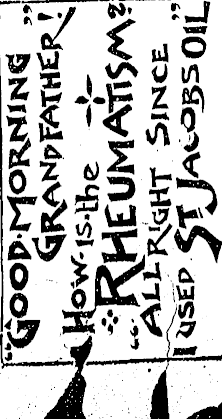 "GOOD·MORNING"
GRANDFATHER!
How·is·the
RHEUMATISM?
"ALL RIGHT SINCE
I USED ST JACOBS OIL"